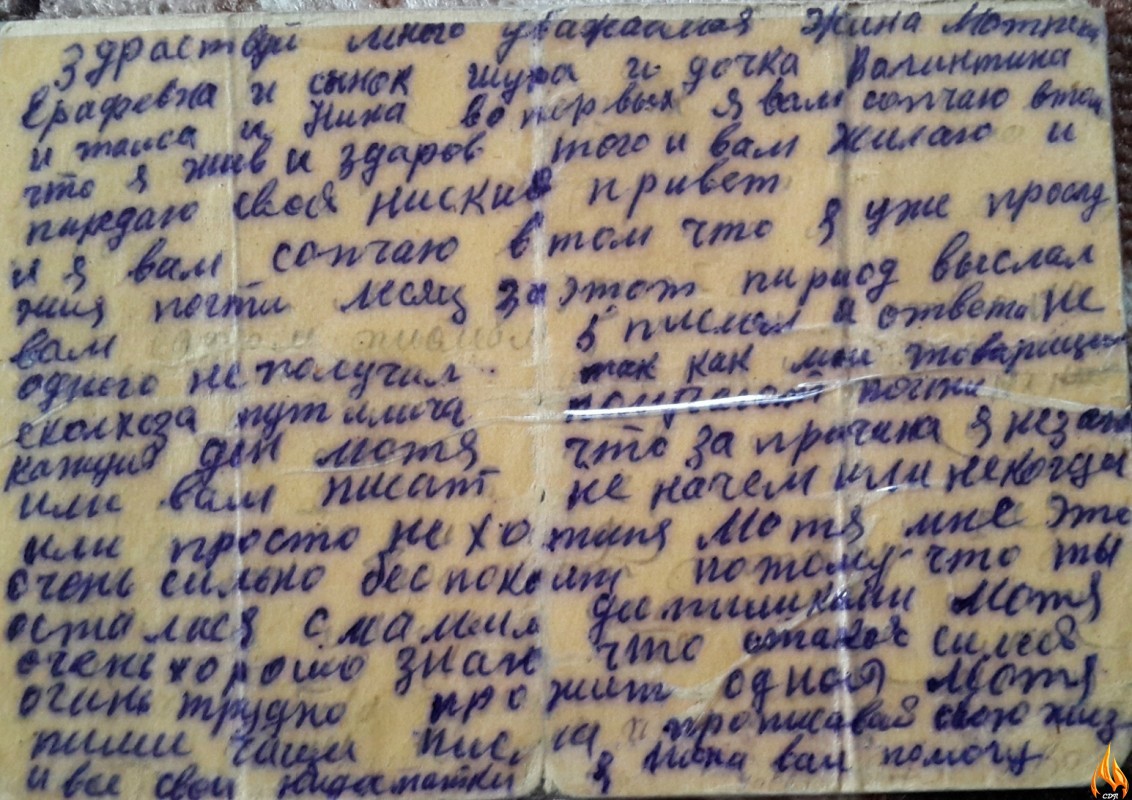 здраствуй много уважаемая жина Мотрена
Ерафевна и сынок шура и дочка Валинтина
и таиса и Нина во первых я вам сопчаю втом
что я жив и здаров того и вам жилаю и
пиридаю своея ниския привет
и я вам сопчаю втом что я уже прослу
жия почти месяц за этот пириод выслал
вам 5 писем а ответа не
одного не получил так как мои товарищи
сколхоза путилича получают почти
кажция ден мотя что за причина я незаю
или вам писат не начем или некогды
или просто не хотитя Мотя мне это
очень сильно беспокоит потому что ты
осталася смалмия дитишками Мотя
очень хорошо знаю что стакой силея
очинь трудно прожит одной Мотя
пиши чащи писма и прописавай свою жиз
и все свои нидостатки я Мона вам помогу
CDЯ